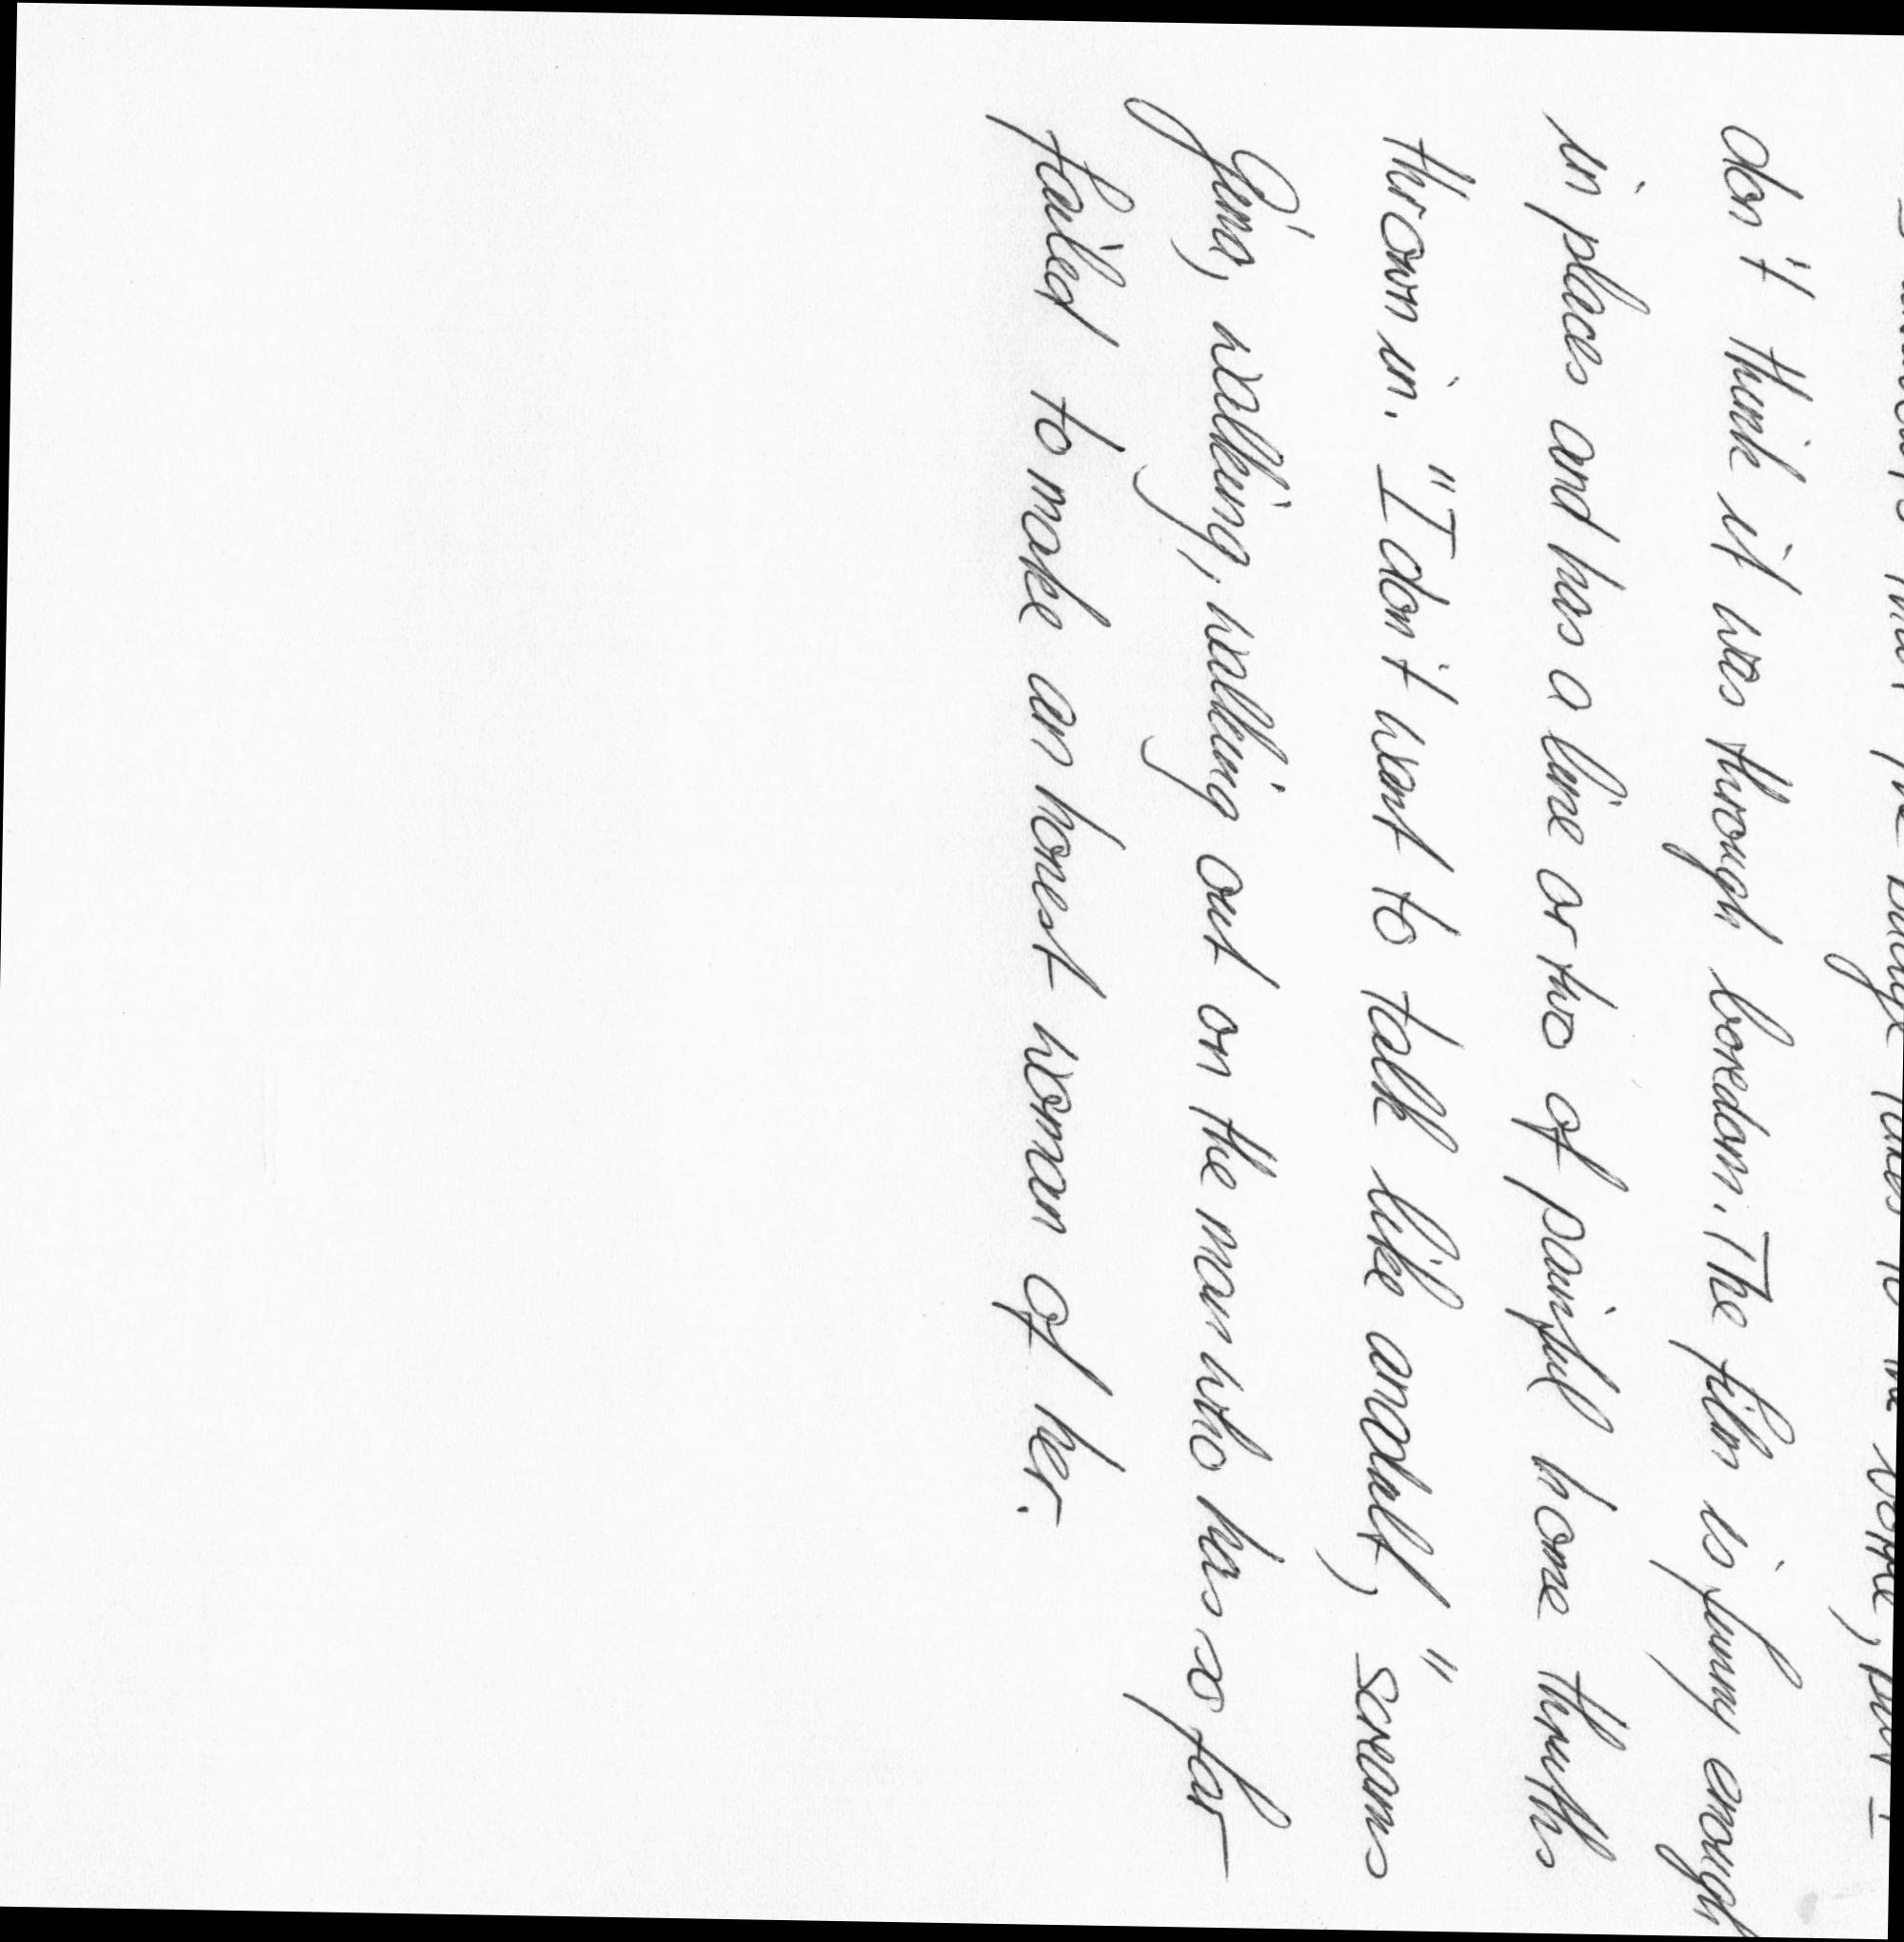 that the takes to the bottle, but I
don't think it was through boredom. The film is funny enough
in places and has a line or two of painful home thruths
thrown in. "I don't want to talk like anadult," screams
Gina, walking, walking out on the man who has so far
failed to make an honest woman of her.